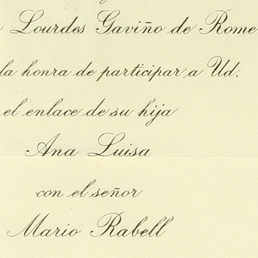 Lourdes Gaviño de Rome
la honra de participar a Ud.
el enlace de su hija
Ana Luisa
con el señor
Mario Rabell